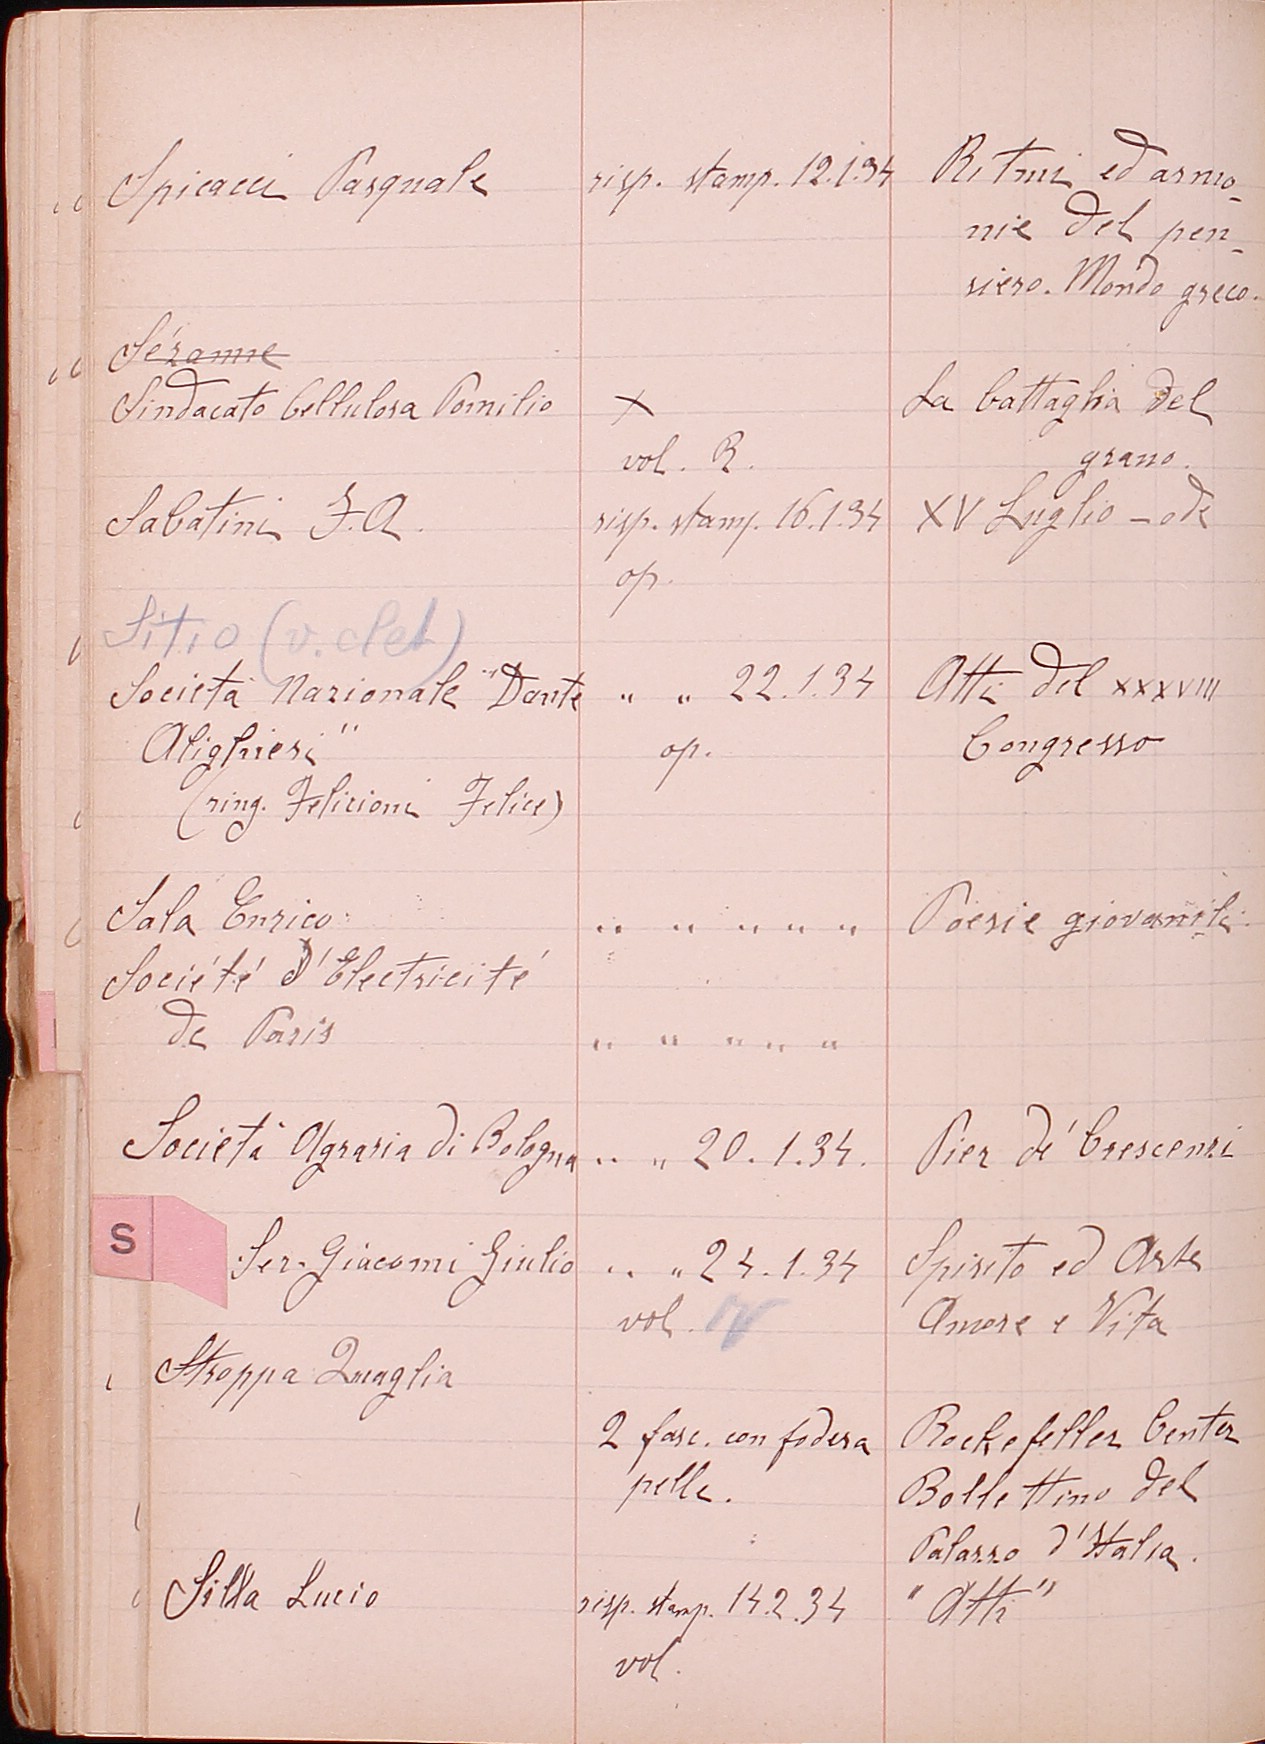 Spicacci Pasquale risp. stamp. 12.1.34 Ritmi ed armo-
nie del pen-
siero. Mondo greco.
Sézanne
Sindacato Cellulosa Pomilio x La battaglia del
vol. R. grano.
Sabatini F.A. risp. stamp. 16.1.34 XV Luglio - ode
op.
Sitio (v. clet)
Società Nazionale "Dante " " 22.1.34 Atti del XXXVIII
Alighieri" op. Congresso
(ring. Felicioni Felice)
Sala Enrico " " " " " Poesie giovanili.
Société d'Electricité
de Paris " " " " "
Società Agraria di Bologna " " 20.1.34. Pier de' Crescenzi
S
Ser-Giacomi Giulio " " 24.1.34 Spirito ed Arte
vol. Amore e Vita
Stroppa Quaglia
2 fasc. con fodera Rockefeller Center
pelle. Bollettino del
Palazzo d'Italia.
Silla Lucio risp. stamp. 14.2.34 "Atti"
vol.